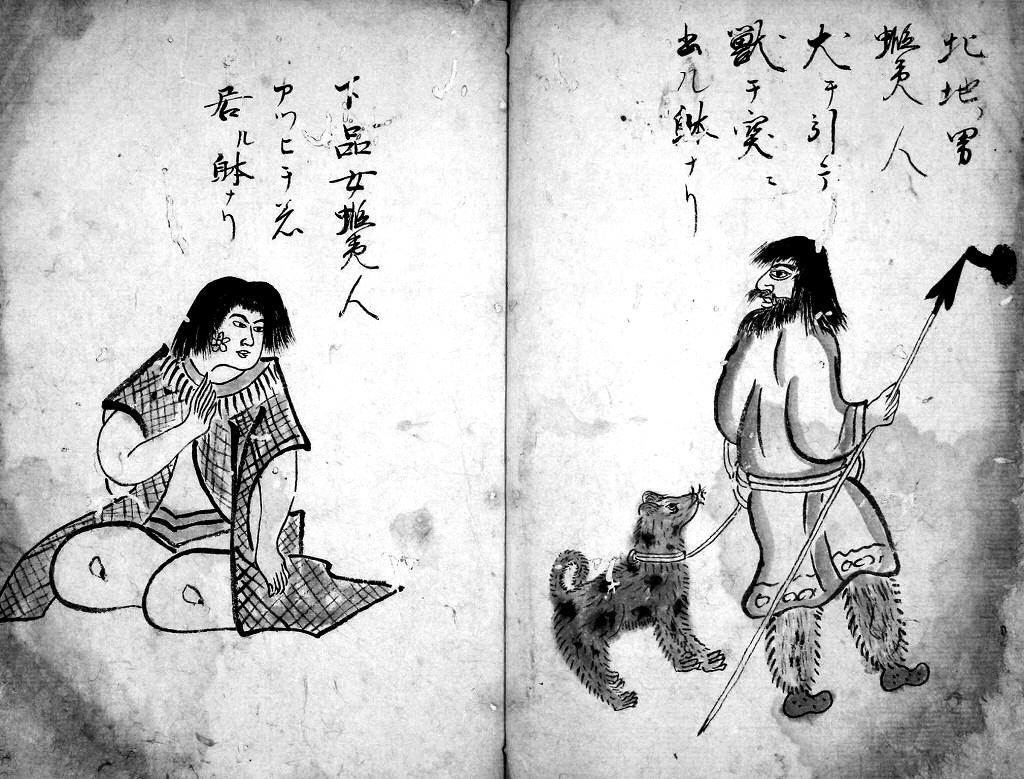 北地ノ男
蝦夷人
犬ヲ引テ
獣ヲ突ニ
出ル躰ナリ
下品女蝦夷人
アツヒヲ着
居ル躰ナリ